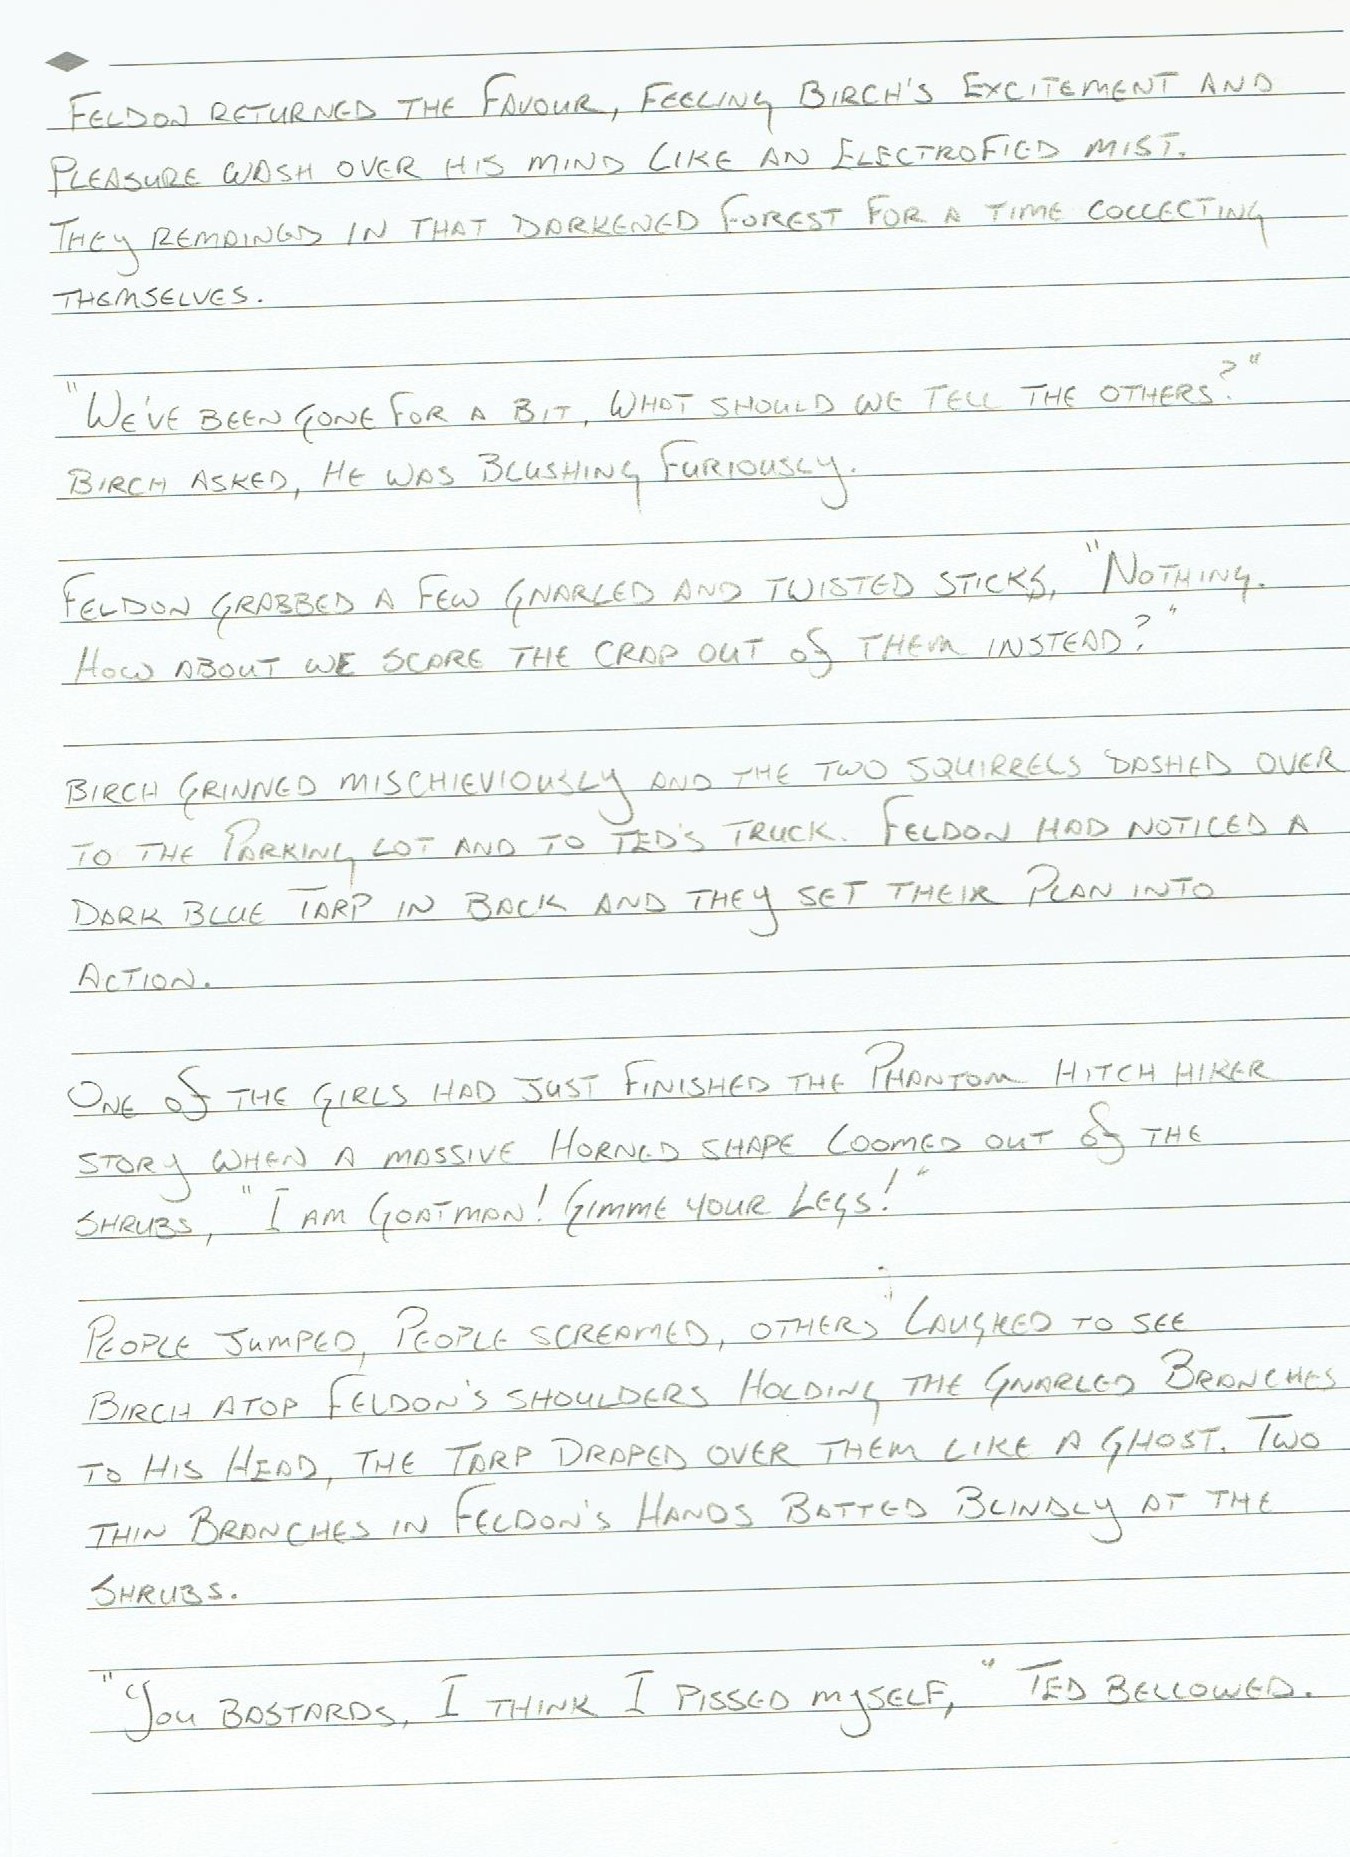 Feldon returned the favour, feeling Birch's excitement and
pleasure wash over his mind like an electrofied mist.
They remained in that darkened forest for a time collecting
themselves.
"We've been gone for a bit, what should we tell the others?"
Birch asked, he was blushing furiously.
Feldon grabbed a few gnarled and twisted sticks, "Nothing.
How about we scare the crap out of them instead?"
Birch grinned mischieviously and the two squirrels dashed over
to the parking lot and to Ted's truck. Feldon had noticed a
dark blue tarp in back and they set their plan into
action.
One of the girls had just finished the Phantom Hitch hiker
story when a massive horned shape loomed out of the
shrubs, "I am Goatman! Gimme your legs!"
People jumped, people screamed, others laughed to see
Birch atop Feldon's shoulders holding the gnarled branches
to his head, the tarp draped over them like a ghost. Two
thin branches in Feldon's hands batted blindly at the
shrubs.
"You bastards, I think I pissed myself," Ted bellowed.